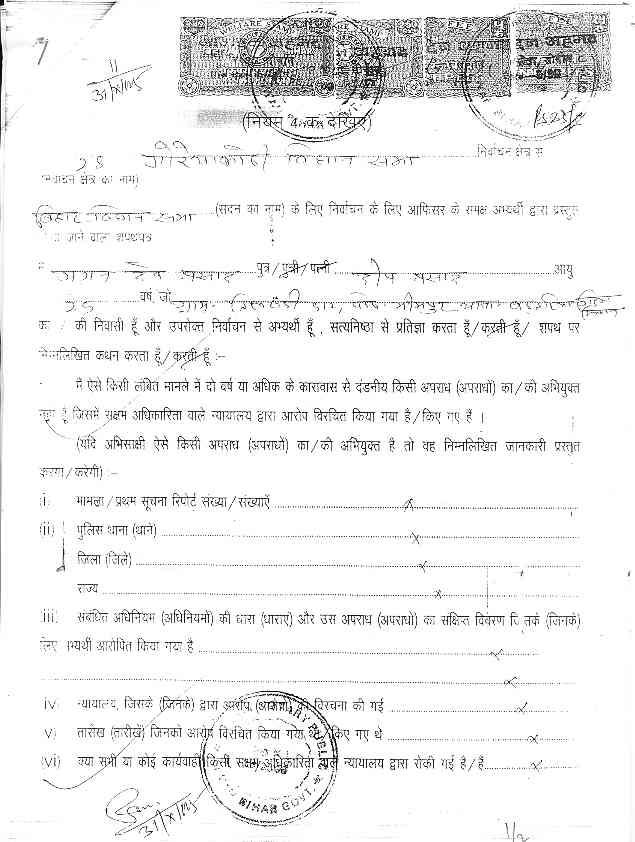 11
31/X/05
(नियम 4 क देखिए)
25 गोरेयाकोठी विधान सभा निर्वाचन क्षेत्र स
(निर्वाचन क्षेत्र का नाम)
बिहार विधान सभा (सदन का नाम) के लिए निर्वाचन के लिए आफिसर के समक्ष अभ्यर्थी द्वारा प्रस्तुत
किये जाने वाला शपथपत्र
पुत्र/पुत्री/पत्नी आयु
वर्ष, जो
का / की निवासी हूँ और उपरोक्त निर्वाचन से अभ्यर्थी हूँ, सत्यनिष्ठा से प्रतिज्ञा करता हूँ/करती हूँ/ शपथ पर
निम्नलिखित कथन करता हूँ/करती हूँ :-
मैं ऐसे किसी लंबित मामले में दो वर्ष या अधिक के कारावास से दंडनीय किसी अपराध (अपराधों) का/की अभियुक्त
नहीं हूँ जिसमें सक्षम अधिकारिता वाले न्यायालय द्वारा आरोप विरचित किया गया है/किए गए हैं ।
(यदि अभिसाक्षी ऐसे किसी अपराध (अपराधों) का/की अभियुक्त है तो वह निम्नलिखित जानकारी प्रस्तुत
करेगा/करेगी) :-
(i) मामला/प्रथम सूचना रिपोर्ट संख्या/संख्याएँ x
(ii) पुलिस थाना (थाने) x
जिला (जिले) x
राज्य x
(iii) संबंधित अधिनियम (अधिनियमों) की धारा (धाराएं) और उस अपराध (अपराधों) का संक्षिप्त विवरण जिनके (जिनके)
लिए अभ्यर्थी आरोपित किया गया है x
x
(iv) न्यायालय, जिसके (जिनके) द्वारा आरोप (आरोपों) की विरचना की गई x
(v) तारीख (तारीखें) जिनको आरोप विरचित किया गया था/किए गए थे x
(vi) क्या सभी या कोई कार्यवाही किसी सक्षम अधिकारिता वाले न्यायालय द्वारा रोकी गई है/हैं x
NOTARY PUBLIC
BIHAR GOVT.
31/X/05
1/2